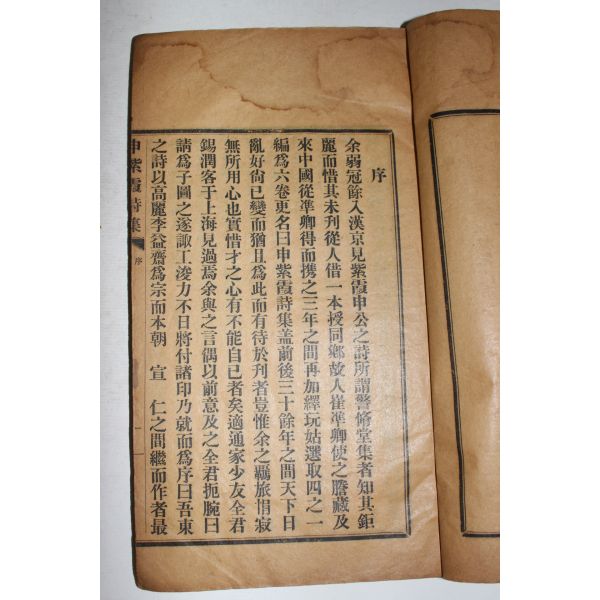 序
余弱冠餘入漢京見紫霞申公之詩所謂警修堂集者知其鉅
麗而惜其未刊從人借一本授同鄕故人崔準卿使之謄藏及
來中國從準卿得而携之三年之間再加繹玩姑選取四之一
編爲六卷更名曰申紫霞詩集盖前後三十餘年之間天下日
亂好尙已變而猶且爲此而有待於刊者豈惟余之羈旅悁寂
無所用心也實惜才之心有不能自已者矣適通家少友全君
錫潤客于上海見過焉余與之言偶以前意及之全君扼腕曰
請爲子圖之遂諏工浚力不日將付諸印乃就而爲序曰吾東
之詩以高麗李益齋爲宗而本朝 宣 仁之間繼而作者最
申紫霞詩集 序 一